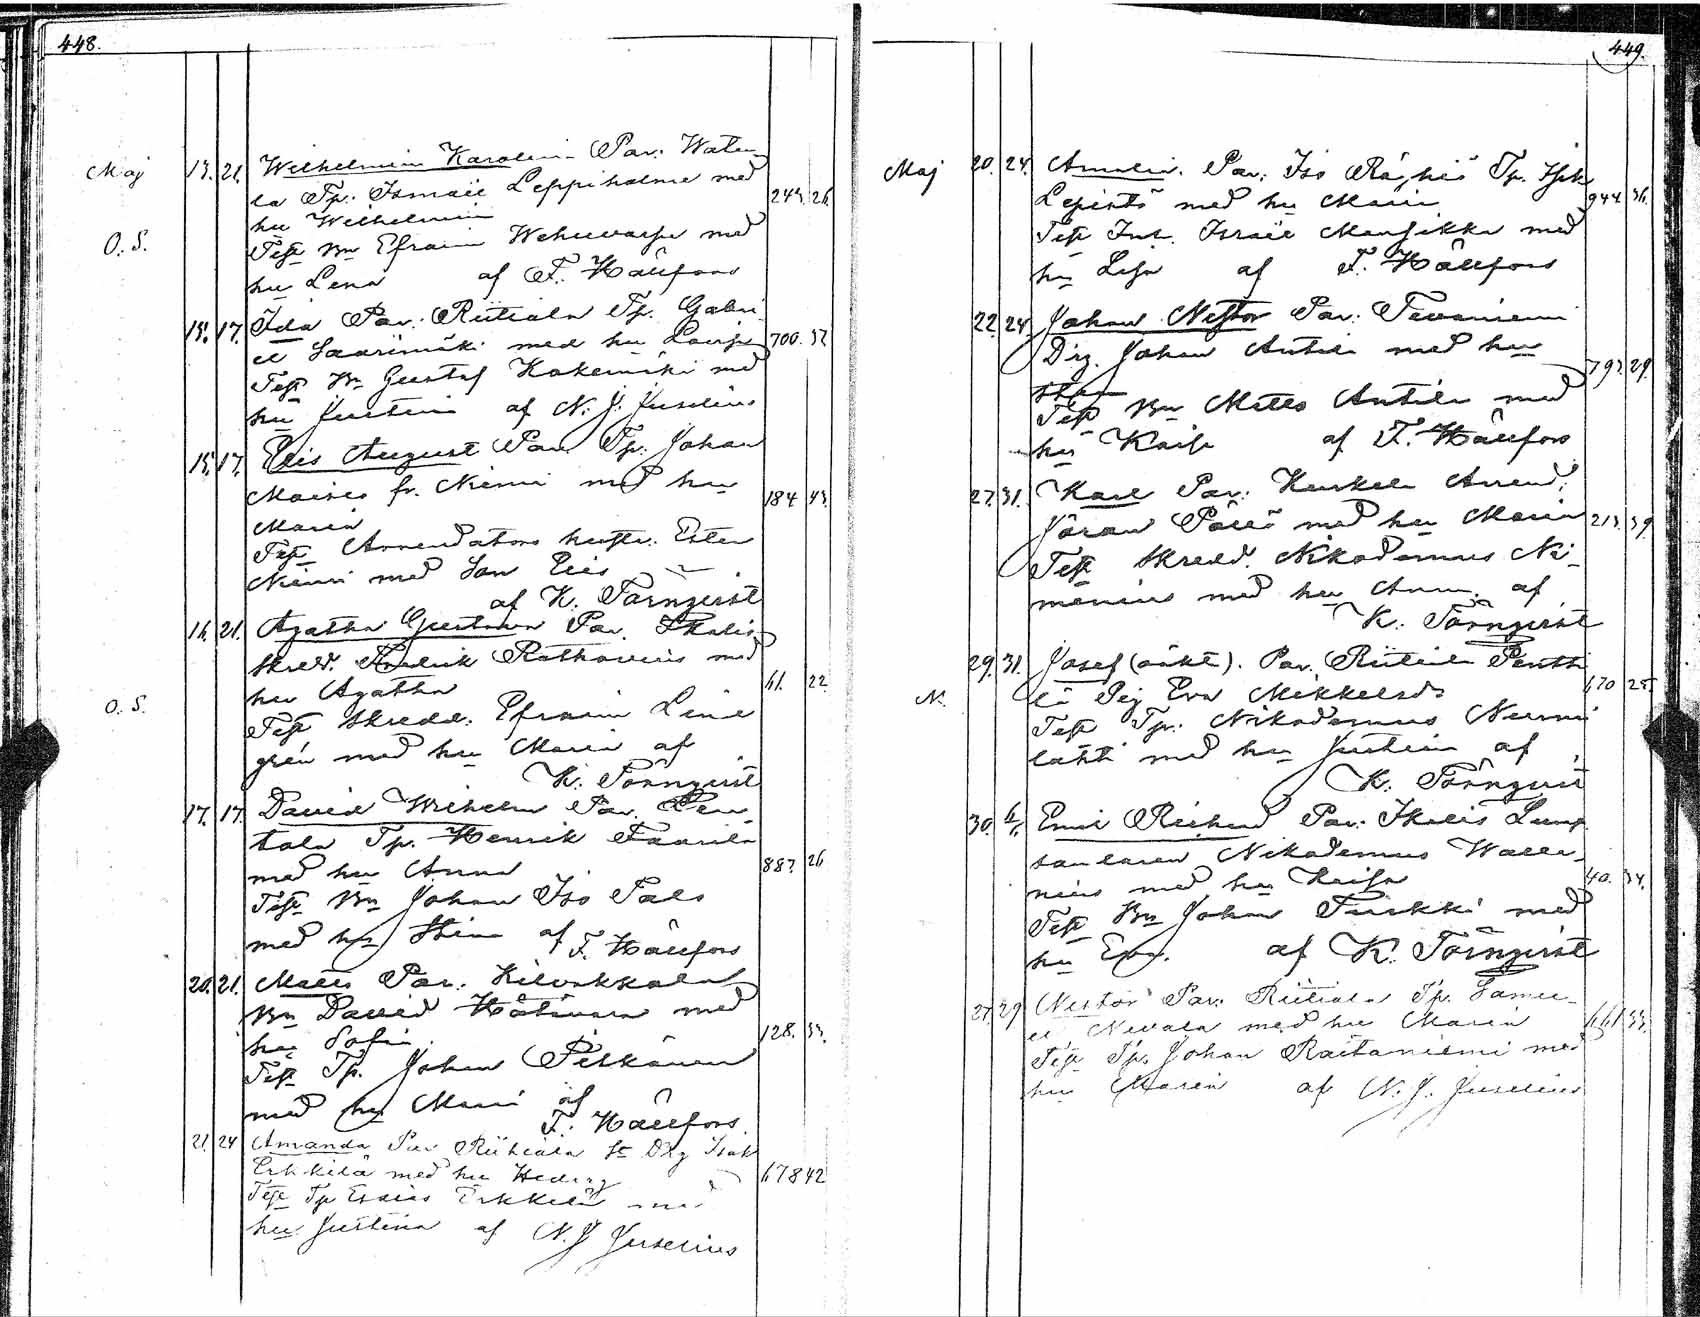 448.
Maj 13. 21. Wilhelmina Karolin. Par: Wate-
la Tp. Ismaël Leppihalme med 243. 26.
hu Wilhelmina
O.S. Test Bn Efraim Wehuvarpe med
hu Lena af F. Hällfors
15. 17. Ida Par: Riitiala Tp. Gabri-
el Saarimäki med hu Lovisa 700. 37
Test Bn Gustaf Kokemäki med
hu Justina af N. J. Juselius
15. 17. Elis August Par Tp. Johan
Moises fr. Niemi med hu 184 43.
Maria
Test Arrendators hustr. Ester
Niemi med Son Elis
af K. Törnqvist
16. 21. Agatha Gustava Par. Ikalis
Skred. Fredrik Rothovius med
hu Agatha 61. 22.
O.S. Test Skredd. Efraim Lind
grén med hu Maria af
K. Törnqvist
17. 17. David Wilhelm Par.
tala Tp. Henrik Faarila
med hu Anna 887. 26
Test Bn Johan Iso Pals
med hu Stina af F. Hällfors
20. 21. Matts Par. Kilvakkala
Bn David med
hu Sofia 128. 33.
Test Tp. Johan Pitkänen
med hu Maria af
F. Hällfors.
21. 24 Amanda Par Riitiala St Drg Isak
Erkkilä med hu Hedvig 678 42
Test Tp Esaias Erkkilä med
hu Justina af N. J. Juselius
449.
Maj 20. 24. Amalia. Par: Iso Röyhiö Tp. Isak
Lepistö med hu Maria 944 36.
Test Inh. Israël Mansikka med
hu Lisa af F. Hällfors
22. 24. Johan Nestor Par: Tevaniemi
Drg. Johan Antila med hu
Stina 793. 29.
Test Bn Matts Antila med
hu Kaisa af F. Hällfors
27. 31. Karl Par: Arrend.
Jöran Pölli med hu Maria 213. 39
Test Skredd. Nikodemus Ni-
menius med hu Anna. af
K. Törnqvist
29. 31. Josef (oäkt). Par. Riitiala Pentti
N. lä Pig Eva Mikkelsdr 670 25.
Test Tp. Nikodemus Nurmi
lahti med hu Justina af
K. Törnqvist
30. 6/6. Emil Richard Par: Ikalis Lump
samlaren Nikodemus Walle-
nius med hu Kaisa 40. 34.
Test Bn Johan Turkki med
hu Eva. af K. Törnqvist
27. 29 Nestor Par: Riitiala Tp. Samu-
el Nevala med hu Maria 661 33.
Test Tp. Johan Raitaniemi med
hu Maria af N. J. Juselius